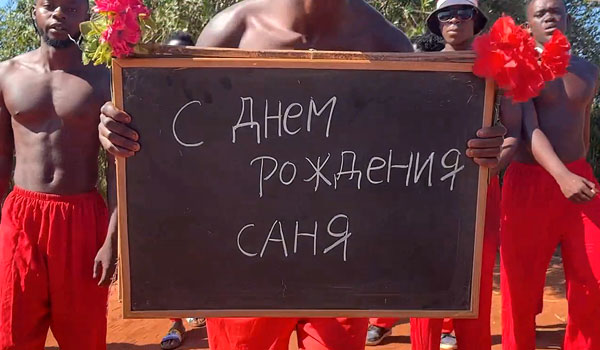 С ДНЕМ
РОЖДЕНИЯ
САНЯ